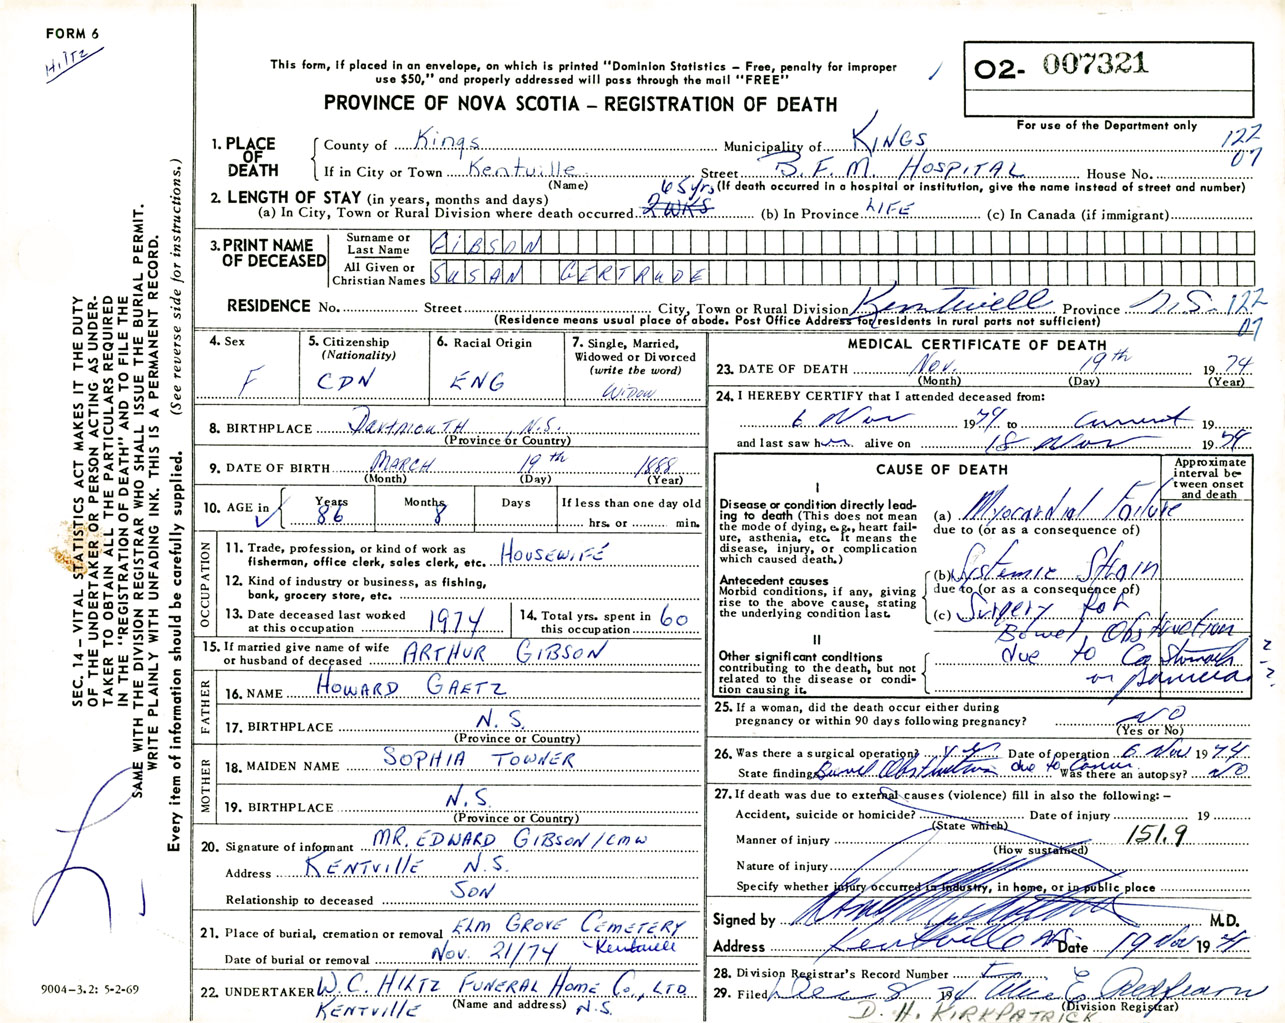 FORM 6
Hiltz
This form, if placed in an envelope, on which is printed "Dominion Statistics – Free, penalty for improper
use $50," and properly addressed will pass through the mail "FREE"
PROVINCE OF NOVA SCOTIA – REGISTRATION OF DEATH
O2- 007321
For use of the Department only
1. PLACE OF DEATH
County of Kings Municipality of KINGS 122
If in City or Town Kentville Street B. F. M. HOSPITAL House No. 07
(Name) (If death occurred in a hospital or institution, give the name instead of street and number)
2. LENGTH OF STAY (in years, months and days) 65 yrs
(a) In City, Town or Rural Division where death occurred 2 WKS (b) In Province LIFE (c) In Canada (if immigrant)
3. PRINT NAME OF DECEASED
Surname or Last Name GIBSON
All Given or Christian Names SUSAN GERTRUDE
RESIDENCE No. Street City, Town or Rural Division Kentville Province N.S. 122
(Residence means usual place of abode. Post Office Address for residents in rural parts not sufficient) 07
4. Sex F
5. Citizenship (Nationality) CDN
6. Racial Origin ENG
7. Single, Married, Widowed or Divorced (write the word) WIDOW
8. BIRTHPLACE DARTMOUTH, N.S.
(Province or Country)
9. DATE OF BIRTH MARCH 19th 1888
(Month) (Day) (Year)
10. AGE in Years 86 Months 8 Days If less than one day old hrs. or min.
OCCUPATION
11. Trade, profession, or kind of work as fisherman, office clerk, sales clerk, etc. HOUSEWIFE
12. Kind of industry or business, as fishing, bank, grocery store, etc.
13. Date deceased last worked at this occupation 1974
14. Total yrs. spent in this occupation 60
15. If married give name of wife or husband of deceased ARTHUR GIBSON
FATHER
16. NAME HOWARD GAETZ
17. BIRTHPLACE N.S.
(Province or Country)
MOTHER
18. MAIDEN NAME SOPHIA TOWNER
19. BIRTHPLACE N.S.
(Province or Country)
20. Signature of informant MR. EDWARD GIBSON/LMW
Address KENTVILLE N.S.
Relationship to deceased SON
21. Place of burial, cremation or removal ELM GROVE CEMETERY
Date of burial or removal Nov. 21/74 Kentville
22. UNDERTAKER W. C. HILTZ FUNERAL HOME CO., LTD
(Name and address) KENTVILLE N.S.
MEDICAL CERTIFICATE OF DEATH
23. DATE OF DEATH Nov. 19th 1974
(Month) (Day) (Year)
24. I HEREBY CERTIFY that I attended deceased from:
6 Nov 1974 to current 19
and last saw her alive on 18 Nov 1974
CAUSE OF DEATH
Approximate interval between onset and death
I
Disease or condition directly leading to death (This does not mean the mode of dying, e.g., heart failure, asthenia, etc. It means the disease, injury, or complication which caused death.)
(a) Myocardial Failure
due to (or as a consequence of)
Antecedent causes
Morbid conditions, if any, giving rise to the above cause, stating the underlying condition last.
(b) Systemic Strain
due to (or as a consequence of)
(c) Surgery for
Bowel Obstruction
due to Ca Stomach
or pancreas
II
Other significant conditions contributing to the death, but not related to the disease or condition causing it.
25. If a woman, did the death occur either during pregnancy or within 90 days following pregnancy? NO
(Yes or No)
26. Was there a surgical operation? yes Date of operation 6 Nov 1974
State findings Bowel Obstruction due to Cancer Was there an autopsy? NO
27. If death was due to external causes (violence) fill in also the following: –
Accident, suicide or homicide? Date of injury 19
(State which)
Manner of injury 151.9
(How sustained)
Nature of injury
Specify whether injury occurred in industry, in home, or in public place
Signed by M.D.
Address Kentville NS Date 19 Nov 1974
28. Division Registrar's Record Number
29. Filed Dec 1974 E. Redfearn
(Division Registrar)
D. H. KIRKPATRICK
SEC. 14 – VITAL STATISTICS ACT MAKES IT THE DUTY
OF THE UNDERTAKER OR PERSON ACTING AS UNDER-
TAKER TO OBTAIN ALL THE PARTICULARS REQUIRED
IN THE "REGISTRATION OF DEATH" AND TO FILE THE
SAME WITH THE DIVISION REGISTRAR WHO SHALL ISSUE THE BURIAL PERMIT.
WRITE PLAINLY WITH UNFADING INK. THIS IS A PERMANENT RECORD.
Every item of information should be carefully supplied. (See reverse side for instructions.)
9004-3.2: 5-2-69